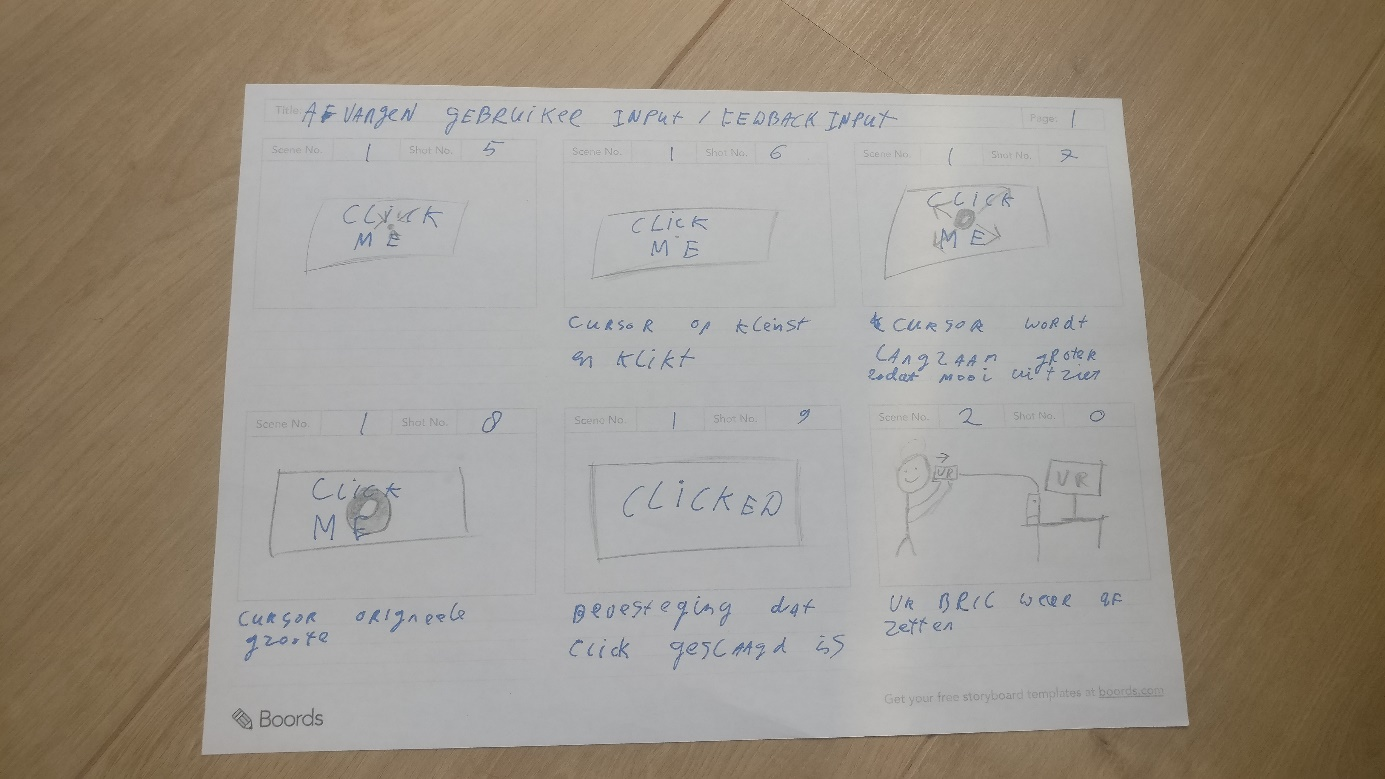 Title: AFVANGEN GEBRUIKER INPUT / FEEDBACK INPUT
Page: 1
Scene No. 1 Shot No. 5
CLICK
ME
Scene No. 1 Shot No. 6
CLICK
ME
CURSOR OP KLEINST
EN KLIKT
Scene No. 1 Shot No. 7
CLICK
ME
CURSOR WORDT
LANGZAAM GROTER
ZODAT MOOI UITZIET
Scene No. 1 Shot No. 8
CLICK
ME
CURSOR ORIGNEELE
GROOTE
Scene No. 1 Shot No. 9
CLICKED
BEVESTEGING DAT
CLICK GESLAAGD IS
Scene No. 2 Shot No. 0
VR
VR
VR BRIL WEER AF
ZETTEN
Boords
Get your free storyboard templates at boords.com